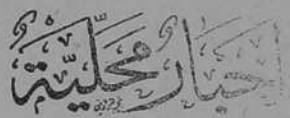 اخبار محلّيّة